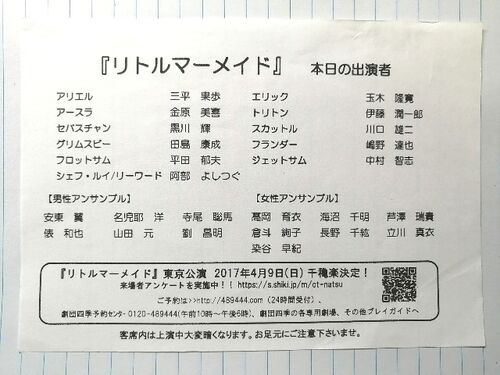 『リトルマーメイド』 本日の出演者
アリエル 三平 果歩 エリック 玉木 隆寛
アースラ 金原 美喜 トリトン 伊藤 潤一郎
セバスチャン 黒川 輝 スカットル 川口 雄二
グリムスビー 田島 康成 フランダー 嶋野 達也
フロットサム 平田 郁夫 ジェットサム 中村 智志
シェフ・ルイ/リーワード 阿部 よしつぐ
【男性アンサンブル】 【女性アンサンブル】
安東 翼 名児耶 洋 寺尾 聡馬 葛岡 育衣 海沼 千明 芦澤 瑞貴
俵 和也 山田 元 劉 昌明 倉斗 絢子 長野 千紘 立川 真衣
染谷 早紀
『リトルマーメイド』東京公演 2017年4月9日(日)千穐楽決定!
来場者アンケートを実施中!! https://s.shiki.jp/m/ot-natsu
ご予約は>>http://489444.com (24時間受付)、
劇団四季予約センター 0120-489444(午前10時~午後6時)、劇団四季の各専用劇場、その他プレイガイドへ
客席内は上演中大変暗くなります。お足元にご注意下さいませ。